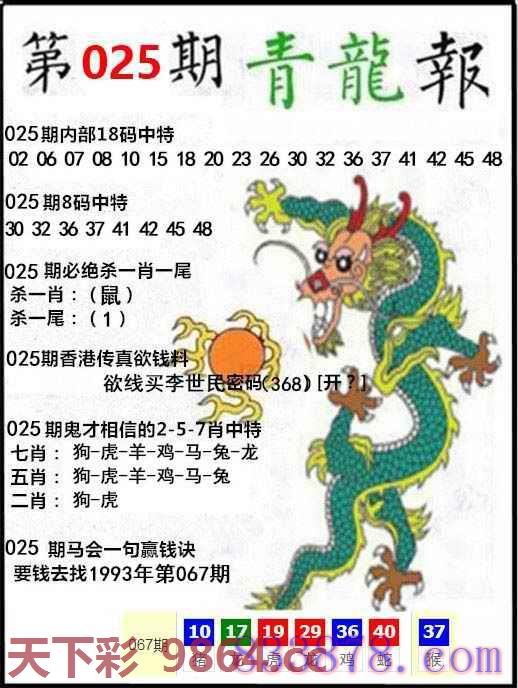 第025期青龍報
025期内部18码中特
02 06 07 08 10 15 18 20 23 26 30 32 36 37 41 42 45 48
025期8码中特
30 32 36 37 41 42 45 48
025期必绝杀一肖一尾
杀一肖：(鼠)
杀一尾：(1)
025期香港传真欲钱料
欲线买李世民密码(368)[开?]
025期鬼才相信的2-5-7肖中特
七肖：狗-虎-羊-鸡-马-兔-龙
五肖：狗-虎-羊-鸡-马-兔
二肖：狗-虎
025期马会一句赢钱诀
要钱去找1993年第067期
067期 10 17 19 29 36 40 37
猪 龙 虎 龙 鸡 蛇 猴
天下彩 9864.cc